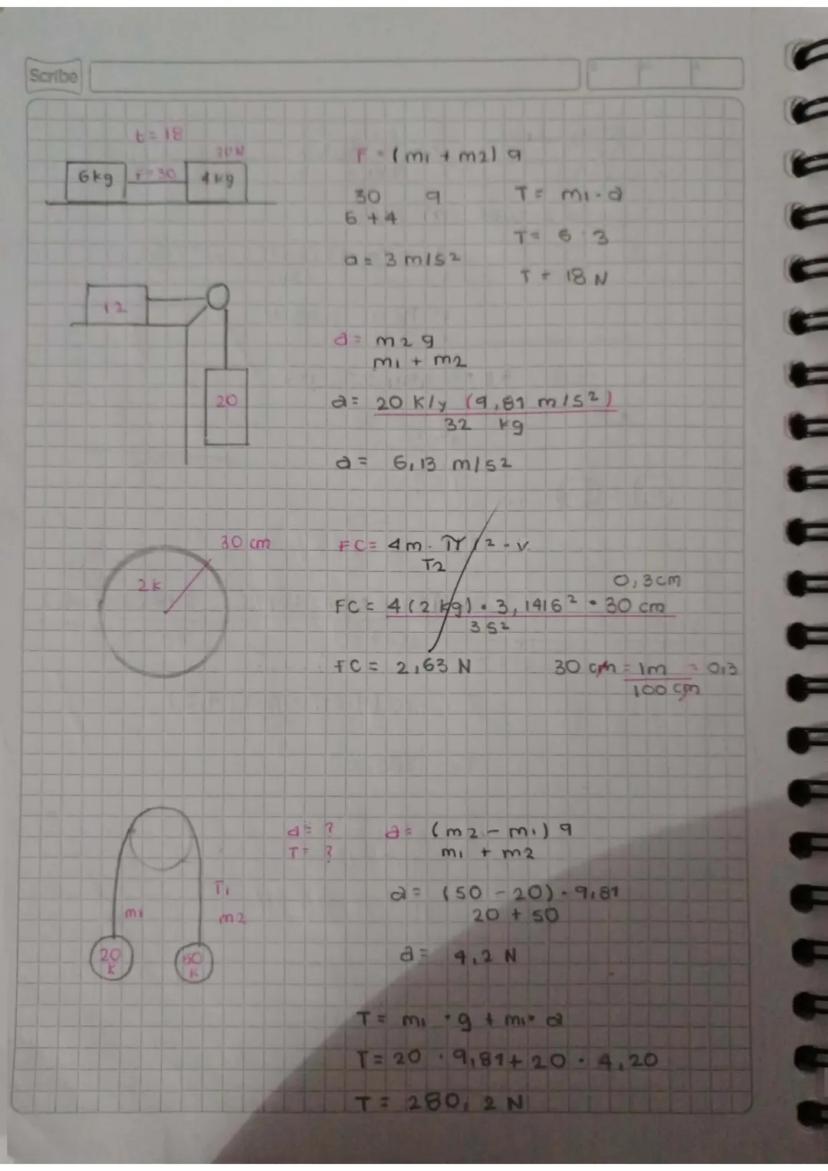 Scribe
t = 18
30N
6kg F=30 4kg
F = (m1 + m2) a
30 a
6 + 4
a = 3 m/s2
T = m1 · a
T = 6 · 3
T = 18 N
12
20
a = m2 g
m1 + m2
a = 20 K/y (9,81 m/s2)
32 kg
a = 6,13 m/s2
30 cm
2k
FC = 4 m · π / 2 - v
T2
0,3cm
FC = 4 (2 kg) · 3,1416² · 30 cm
3 s2
FC = 2,63 N
30 cm = 1m = 0,3
100 cm
a = ?
T = ?
a = (m2 - m1) g
m1 + m2
a = (50 - 20) · 9,81
20 + 50
a = 4,2 N
m1
T1
m2
20
K
50
K
T = m1 · g + m1 · a
T = 20 · 9,81 + 20 · 4,20
T = 280,2 N